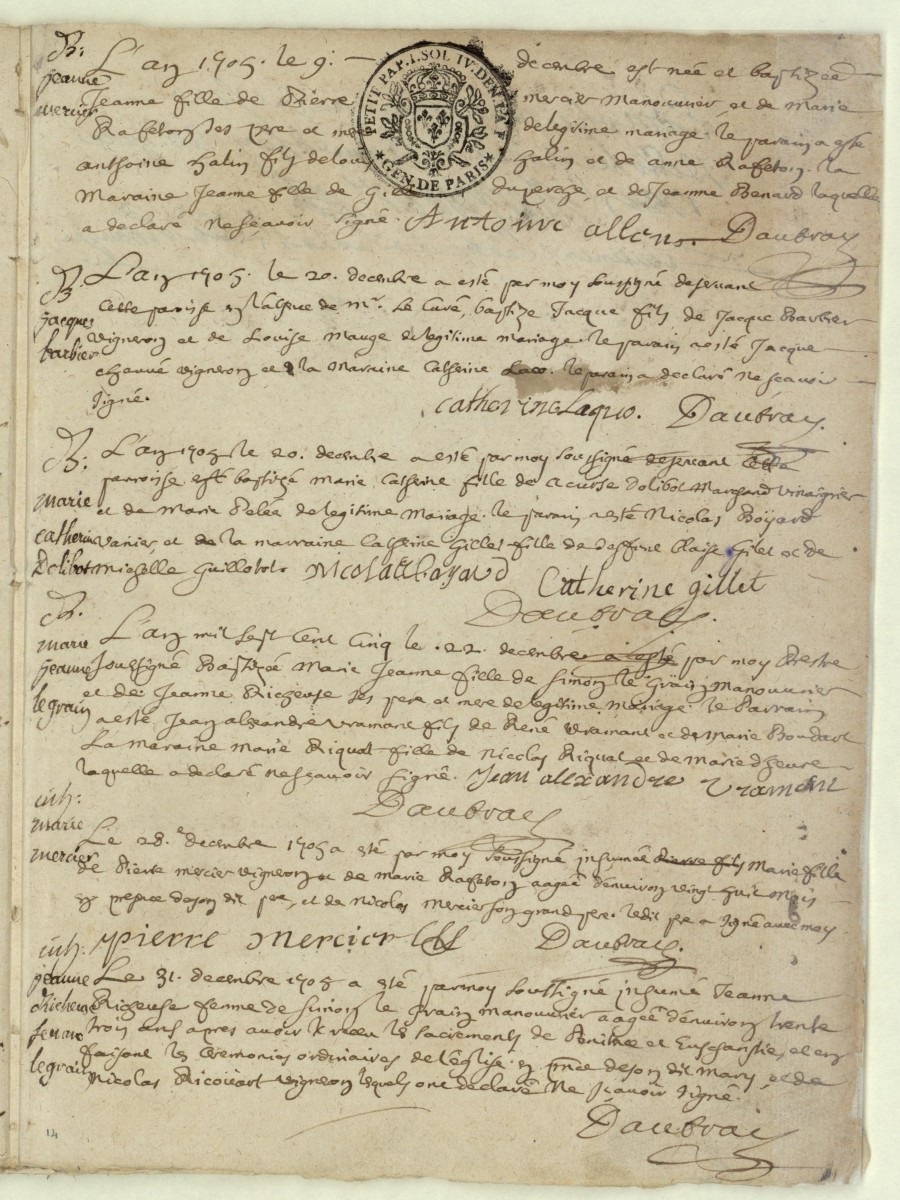 B:
jeanne
mercier
L'an 1705. le 9: decembre est née et baptizée
Jeanne fille de Pierre mercier Manouvrier, et de Marie
Rafeton ses pere et mere de legitime mariage. le parain a esté
anthoine halin fils de louis halin et de anne Rafeton. la
Maraine Jeanne fille de et de Jeanne Benard laquelle
a declaré ne sçavoir signé. Antoine allens. Daubray
PETIT PAP. I. SOL IV. DEN. LA F.
GEN. DE PARIS
B
jacques
barbier
L'an 1705. le 20. decembre a esté par moy soussigné deservant
cette paroisse en l'absence de mr. Le Curé, baptize Jacque fils de Jacque Barbier
vigneron et de Louise Mauge de legitime mariage. le parain a esté Jacque
chauvé vigneron et la Maraine Catherine Laco. le parain a declaré ne scavoir
signé.
catherine Laquo. Daubray.
B:
marie
catherine
Dolibot
L'an 1705 le 20. decembre a esté par moy soussigné deservant cette
parroisse esté baptizé Marie Catherine fille de Dolibot Marchand vinaigrier
et de Marie Pelée de legitime Mariage. le parain a esté Nicolas Boyard
vanier, et de la marraine Catherine Gillet fille de deffunt Blaise Gilet et de
Michelle Guillotot. Nicolas bayard Catherine gillet
Daubray.
B.
marie
jeanne
le grain
L'an mil sept cent cinq le .22. decembre a esté par moy Prestre
soussigné Baptizé Marie Jeanne fille de Simon le Grain Manouvrier
et de Jeanne Richeuse ses pere et mere de legitime Mariage. le Parrain
a esté Jean alexandre vramant fils de René vramant et de Marie Boudart
La maraine Marie Riquat fille de Nicolas Riquat et de Marie dheure
laquelle a declaré ne sçavoir signé. Jean alexandre Vramant
Daubray
inh:
marie
mercier
Le 28.e decembre 1705 a esté par moy soussigné inhumée Pierre fils Marie fille
de Pierre mercier vigneron et de Marie Rafeton aagée d'environ vingt huit mois
en presence de son dit pere, et de Nicolas Mercier son grand pere. ledit pere a signé avec moy
pierre mercier Daubray.
inh:
jeanne
Richeuse
femme
le grain
Le 31. decembre 1705 a esté par moy soussigné inhumé Jeanne
Richeuse femme de Simon le Grain manouvrier aagée d'environ trente
trois ans apres avoir receu les sacrements de Penitence et Eucharistie, et en
faisant les Ceremonies ordinaires de l'église en pnce de son dit Mary, et de
Nicolas Ricouart vigneron lequels ont declaré Ne scavoir signé.
Daubray
14